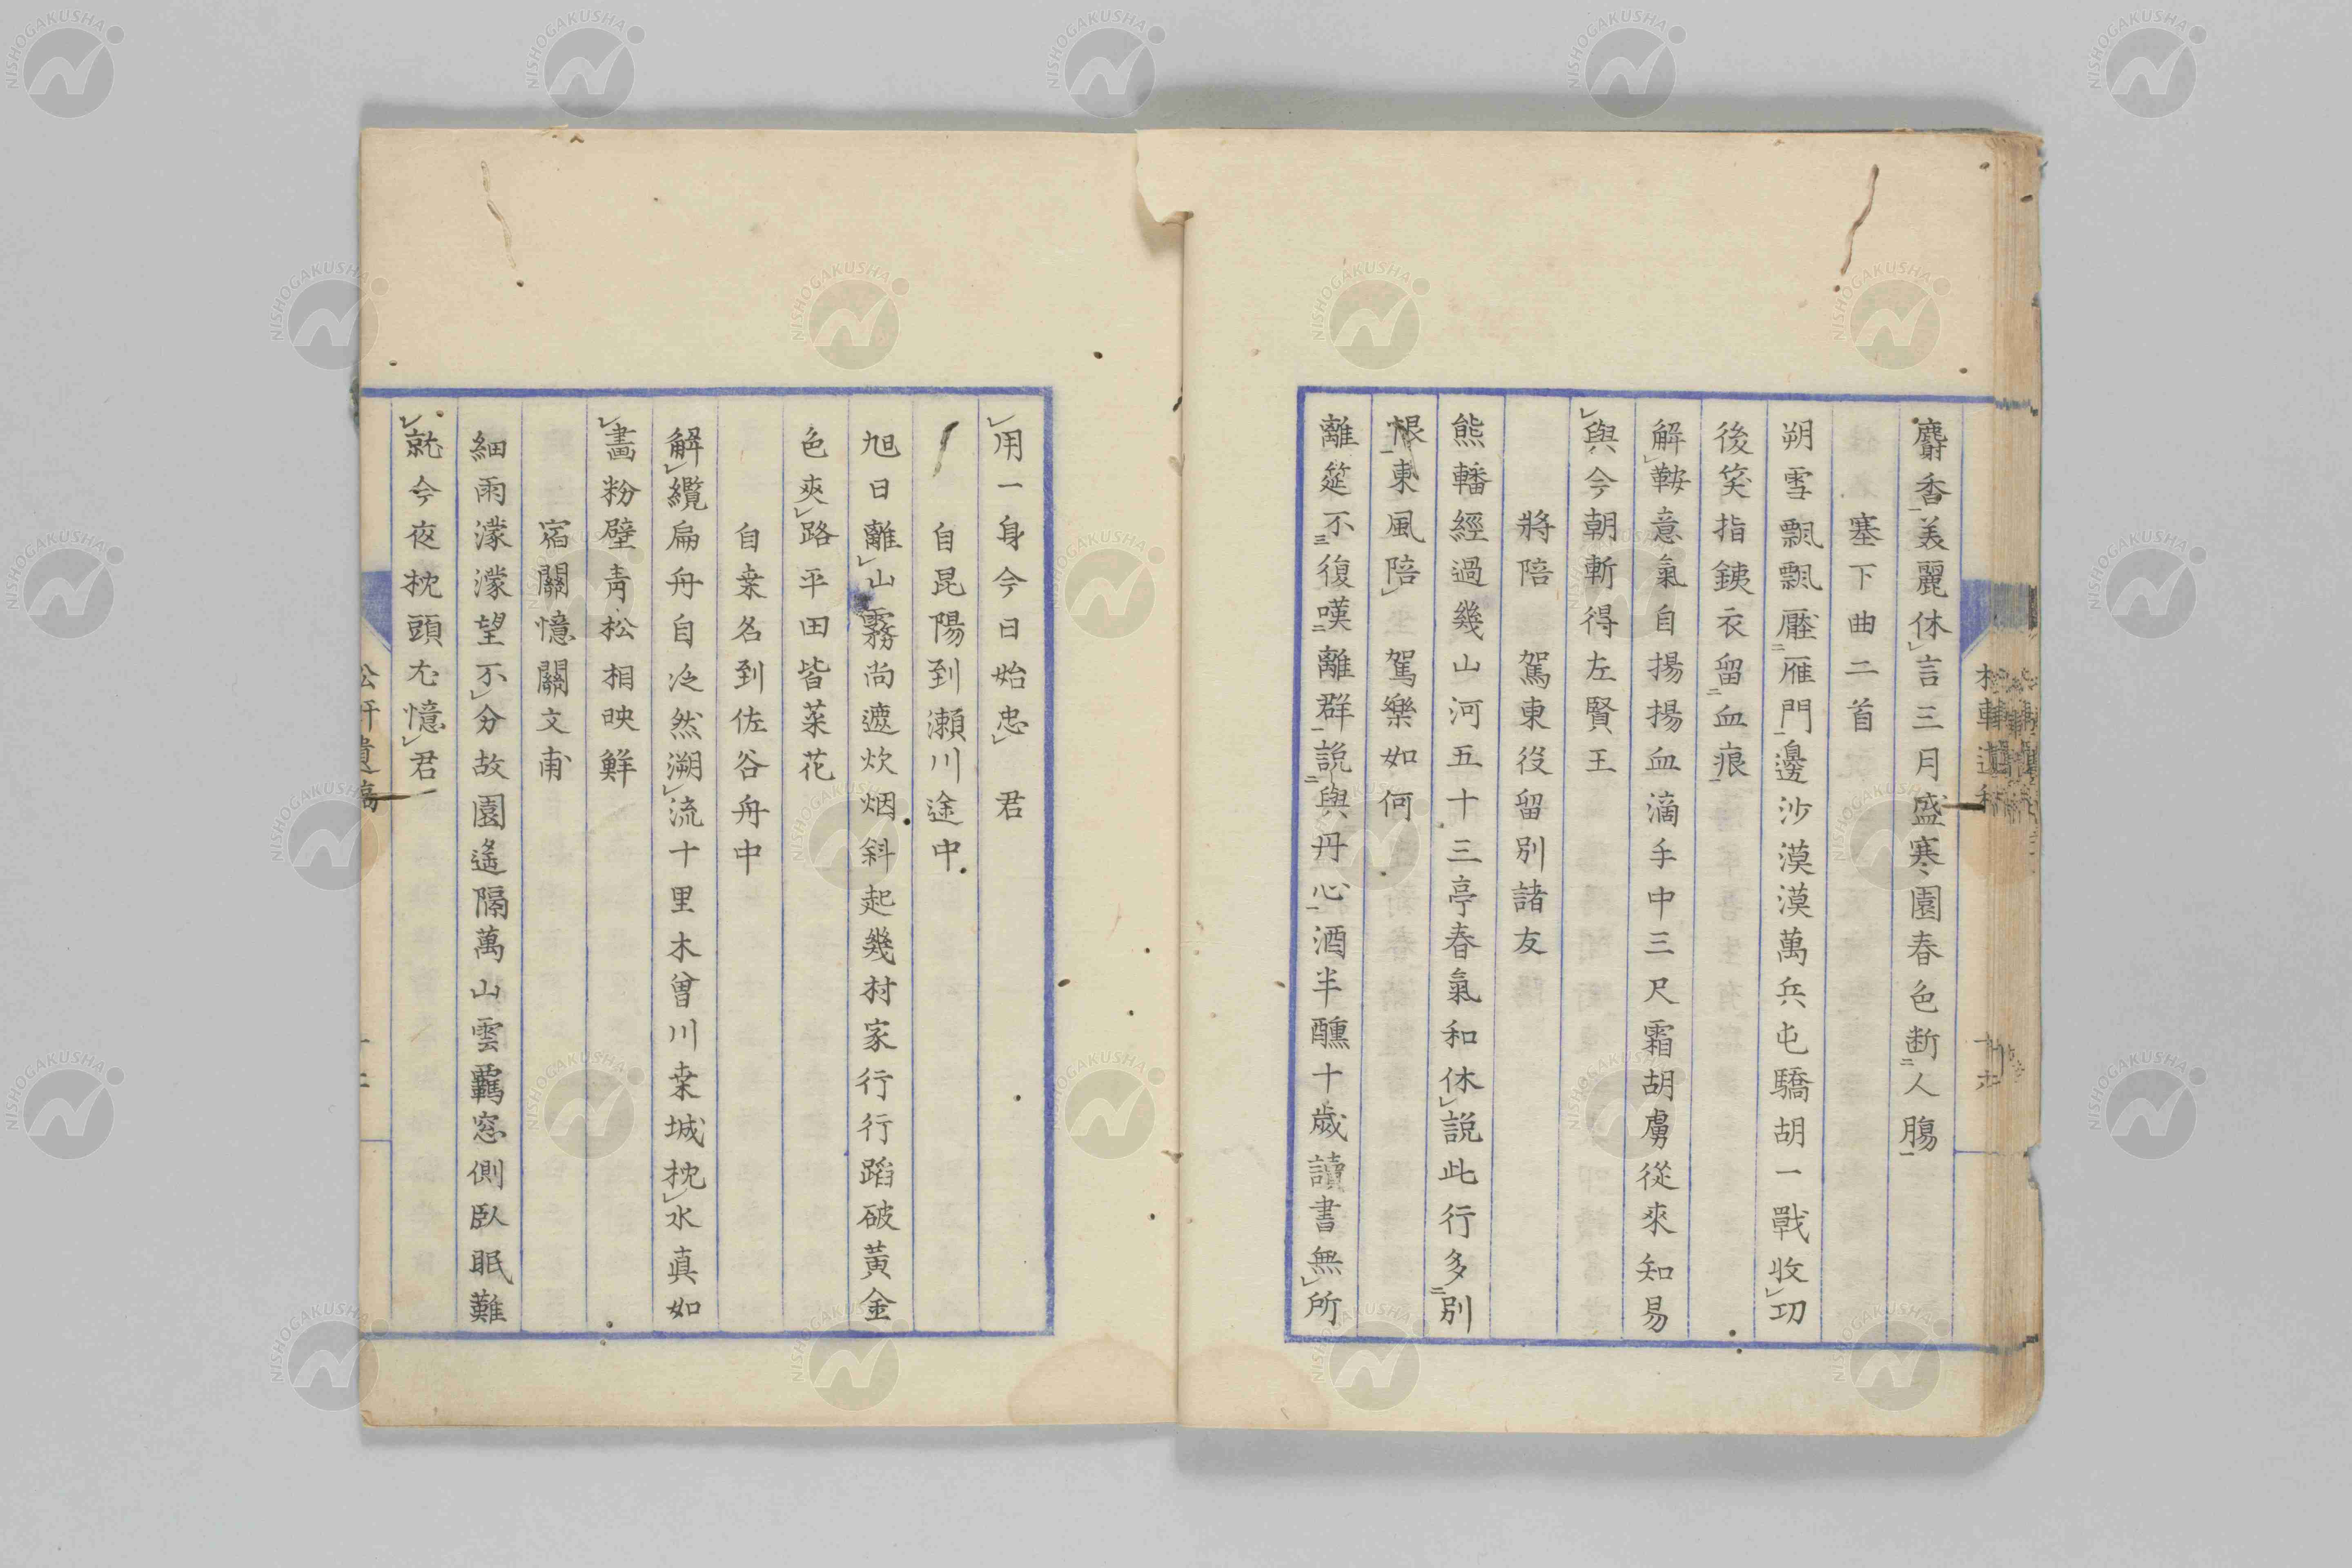 麝香美麗休言三月盛寒園春色断人膓
塞下曲二首
朔雪飄飄壓雁門邊沙漠漠萬兵屯驕胡一戰收功
後笑指銕衣留血痕
解鞍意氣自揚揚血滴手中三尺霜胡虜從來知易
與今朝斬得左賢王
將陪　駕東役留別諸友
熊轓經過幾山河五十三亭春氣和休說此行多別
恨東風陪　駕樂如何
離筵不復嘆離群說與丹心酒半醺十歲讀書無所
用一身今日始忠　君
自昆陽到瀨川途中
旭日離山霧尚遮炊烟斜起幾村家行行蹈破黃金
色爽路平田皆菜花
自桒名到佐谷舟中
解纜扁舟自泛然溯流十里木曾川桒城枕水真如
畵粉壁靑松相映鮮
宿關憶關文甫
細雨濛濛望不分故園遙隔萬山雲羈窓側臥眠難
就今夜枕頭尤憶君